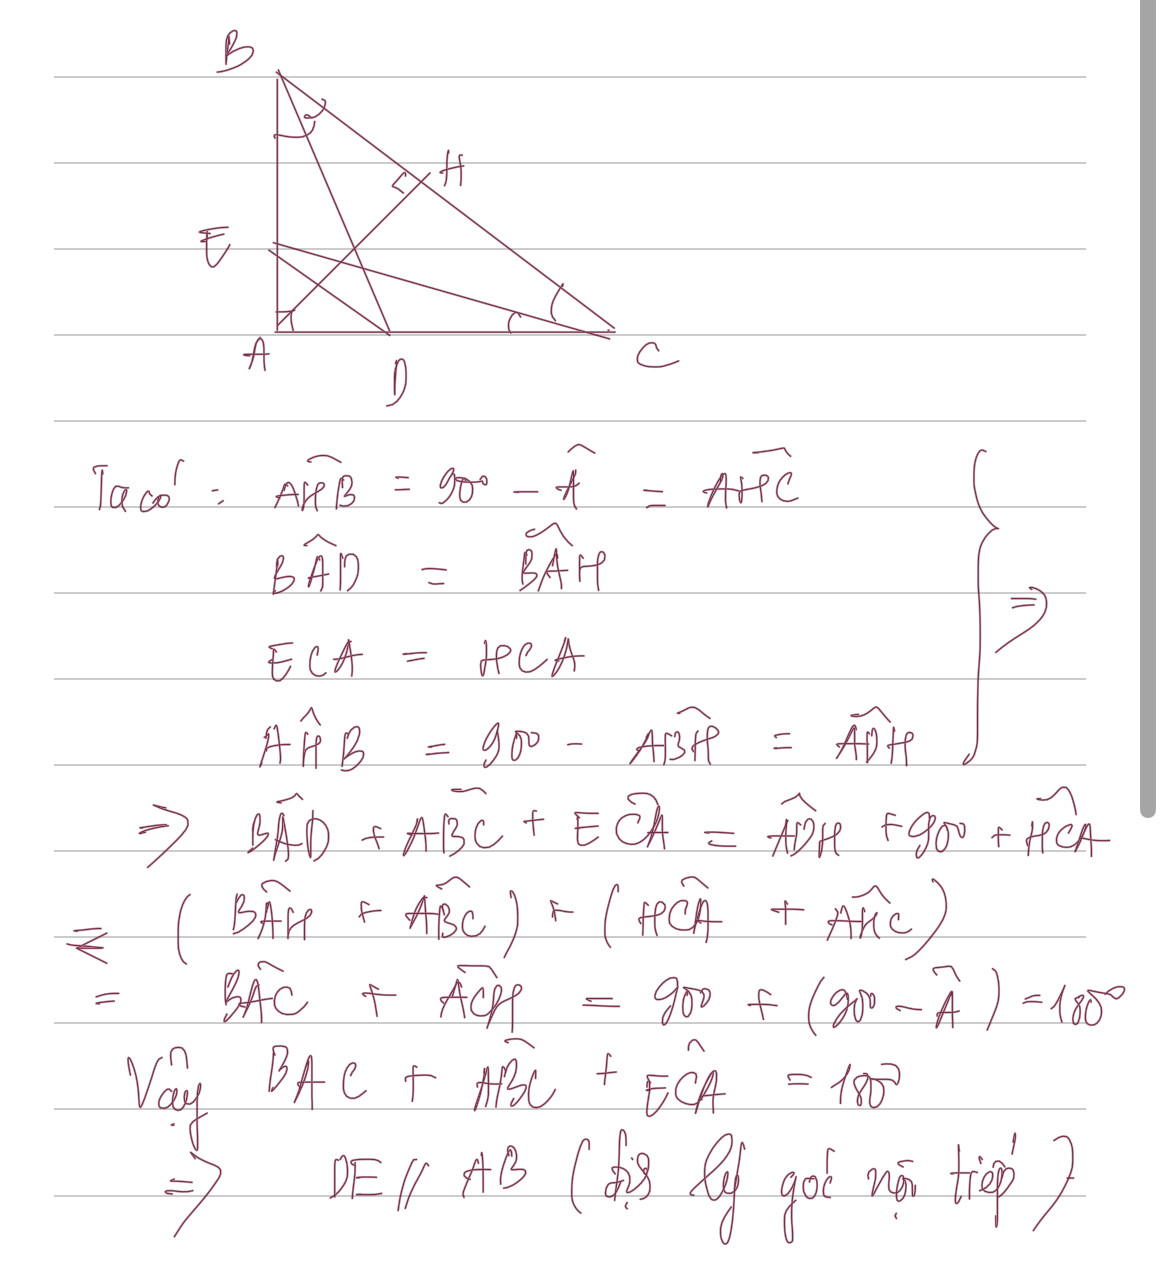 B
H
E
A
D
C
Ta có: AHB = 90° - Â = AHC
BAD = BAH
ECA = HCA
AHB = 90° - ABH = ADH
} =>
=> BAD + ABC + ECA = ADH + 90° + HCA
(BAH + ABC) + (HCA + AHC)
= BAC + ACH = 90° + (90° - Â) = 180°
Vậy BAC + ABC + ECA = 180°
=> DE // AB ( lý góc nội tiếp)